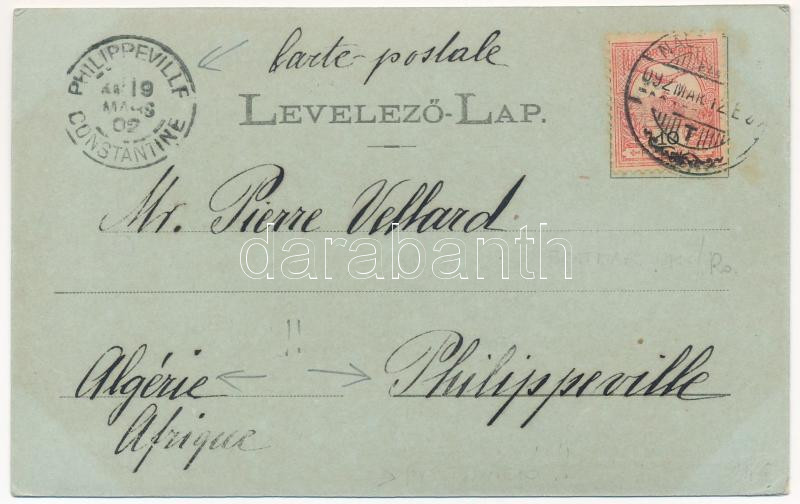 carte-postale
LEVELEZŐ-LAP.
PHILIPPEVILLE
19
MARS
02
CONSTANTINE
10
Mr. Pierre Vellard
darabanth
Philippeville
Algérie
Afrique
!!